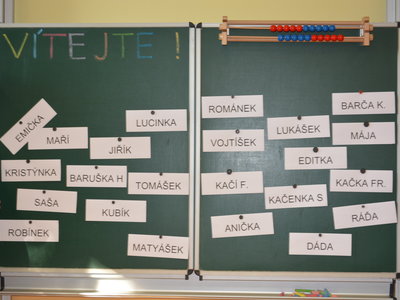 VÍTEJTE!
EMIČKA
LUCINKA
MAŘÍ
JIŘÍK
KRISTÝNKA
BARUŠKA H
TOMÁŠEK
SAŠA
KUBÍK
ROBÍNEK
MATYÁŠEK
ROMÁNEK
BARČA K.
LUKÁŠEK
VOJTÍŠEK
MÁJA
EDITKA
KAČÍ F.
KAČKA FR.
KAČENKA S
ANIČKA
RÁĎA
DÁDA